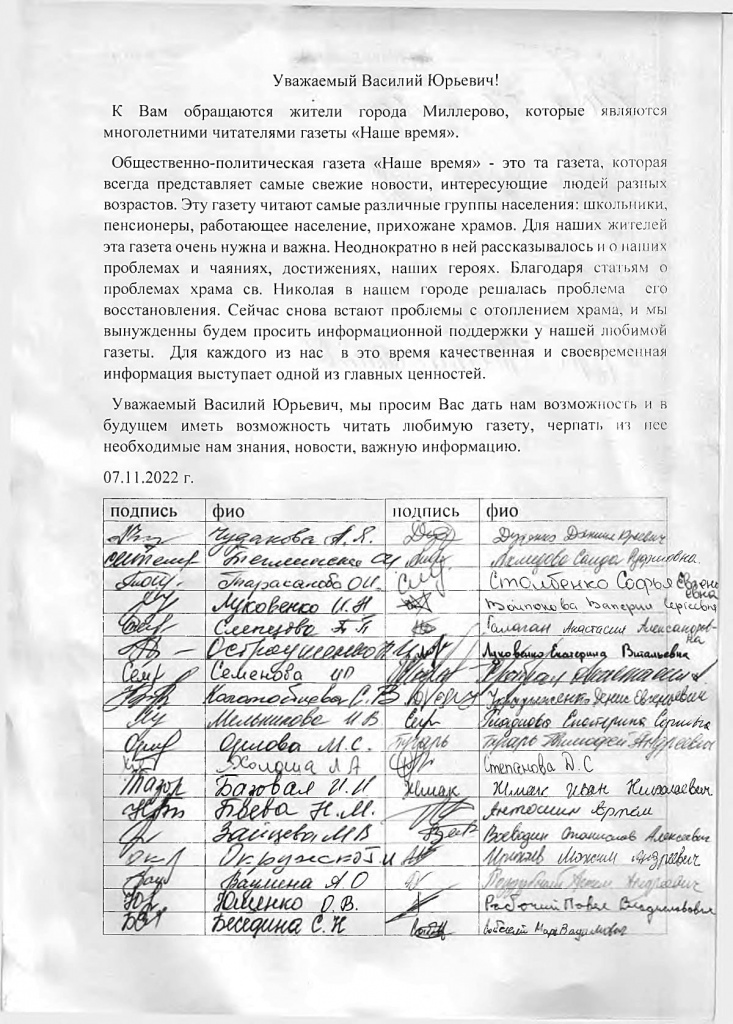 Уважаемый Василий Юрьевич!
К Вам обращаются жители города Миллерово, которые являются
многолетними читателями газеты «Наше время».
Общественно-политическая газета «Наше время» - это та газета, которая
всегда представляет самые свежие новости, интересующие людей разных
возрастов. Эту газету читают самые различные группы населения: школьники,
пенсионеры, работающее население, прихожане храмов. Для наших жителей
эта газета очень нужна и важна. Неоднократно в ней рассказывалось и о наших
проблемах и чаяниях, достижениях, наших героях. Благодаря статьям о
проблемах храма св. Николая в нашем городе решалась проблема его
восстановления. Сейчас снова встают проблемы с отоплением храма, и мы
вынужденны будем просить информационной поддержки у нашей любимой
газеты. Для каждого из нас в это время качественная и своевременная
информация выступает одной из главных ценностей.
Уважаемый Василий Юрьевич, мы просим Вас дать нам возможность и в
будущем иметь возможность читать любимую газету, черпать из нее
необходимые нам знания, новости, важную информацию.
07.11.2022 г.
подпись фио подпись фио
Чудакова А.Я.
Столбенко Софья
Луковенко И.Н
Слепцова Т П Галаган Анастасия Александровна
Луковенко Екатерина Витальевна
Семенова
Денис Евгеньевич
Мельникова И.В. Екатерина Сергеевна
Орлова М.С. Пугарь Пугарь Тимофей Андреевич
Степанова Д.С
Базовая И.И Жмак Жмак Иван Николаевич
Баева Н.М. Антошин Артём
Зайцева М В Воеводин Станислав Алексеевич
Максим Андреевич
Ваулина А О Артем Андреевич
Ющенко О.В. Рабочий Павел Владимирович
Беседина С.Н